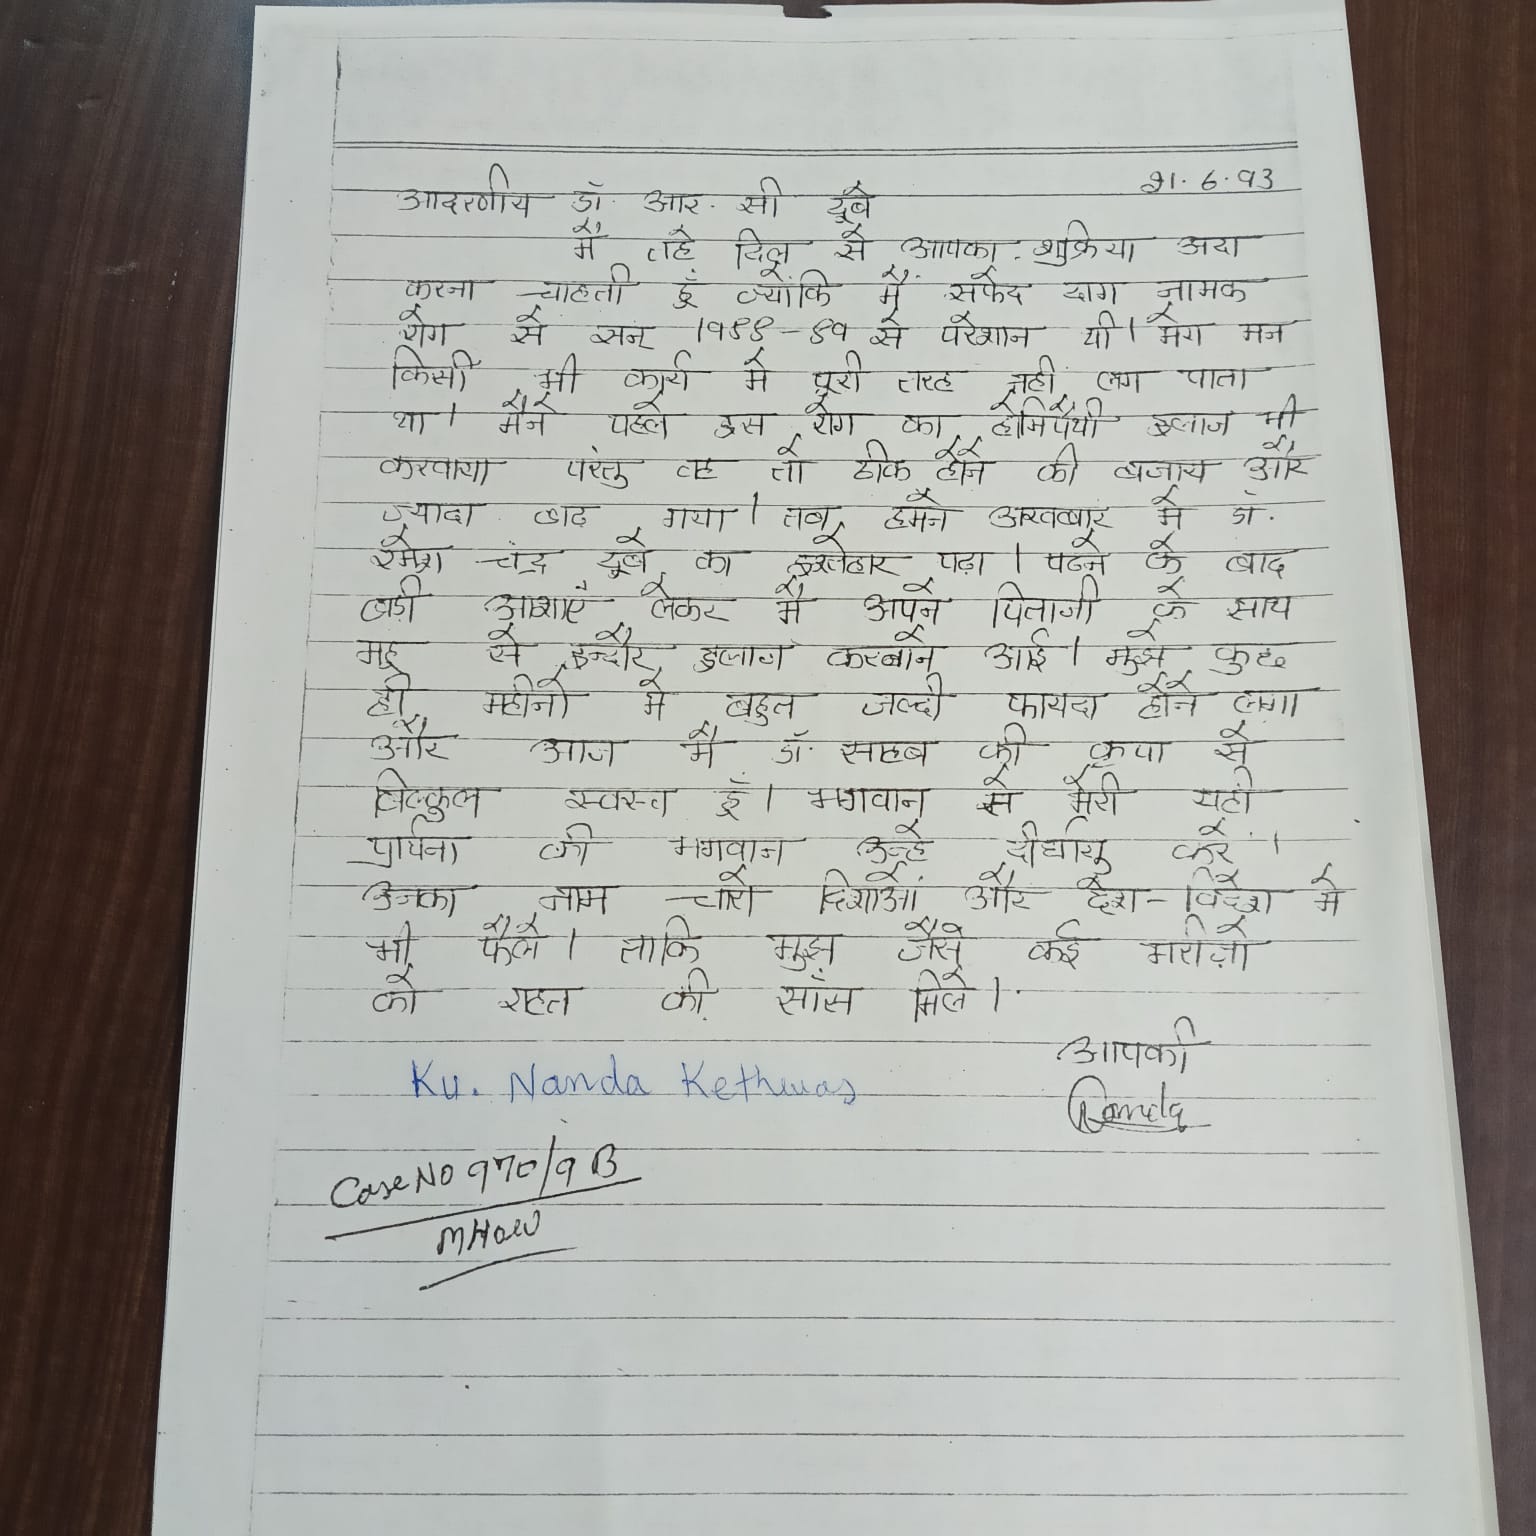 21.6.93
आदरणीय डॉ. आर. सी दूबे
मैं तहे दिल से आपका शुक्रिया अदा
करना चाहती हूँ क्योंकि मैं सफेद दाग नामक
रोग से सन् 1988-89 से परेशान थी। मेरा मन
किसी भी कार्य मे पूरी तरह नही लग पाता
था। मैंने पहले इस रोग का होमिपैथी इलाज भी
करवाया परंतु वह तो ठीक होने की बजाय और
ज्यादा बाढ गया। तब हमने अखबार में डॉ.
रमेश चंद्र दूबे का इश्तेहार पढ़ा। पढने के बाद
बड़ी आशाएँ लेकर मैं अपने पिताजी के साथ
महू से इन्दौर इलाज करबाने आई। मुझे कुछ
ही महीनो मे बहुत जल्दी फायदा होने लगा
और आज मैं डॉ. साहब की कृपा से
बिल्कुल स्वस्त हूँ। भगवान से मेरी यही
प्रार्थना की भगवान उन्हे दीर्घायु करें।
उनका नाम चारो दिशाओं और देश-विदेश मे
भी फैले। ताकि मुझ जैसे कई मरीज़ो
को राहत की साँस मिले।
आपकी
Ku. Nanda Kethwas
Case No 970/9 B
MHow